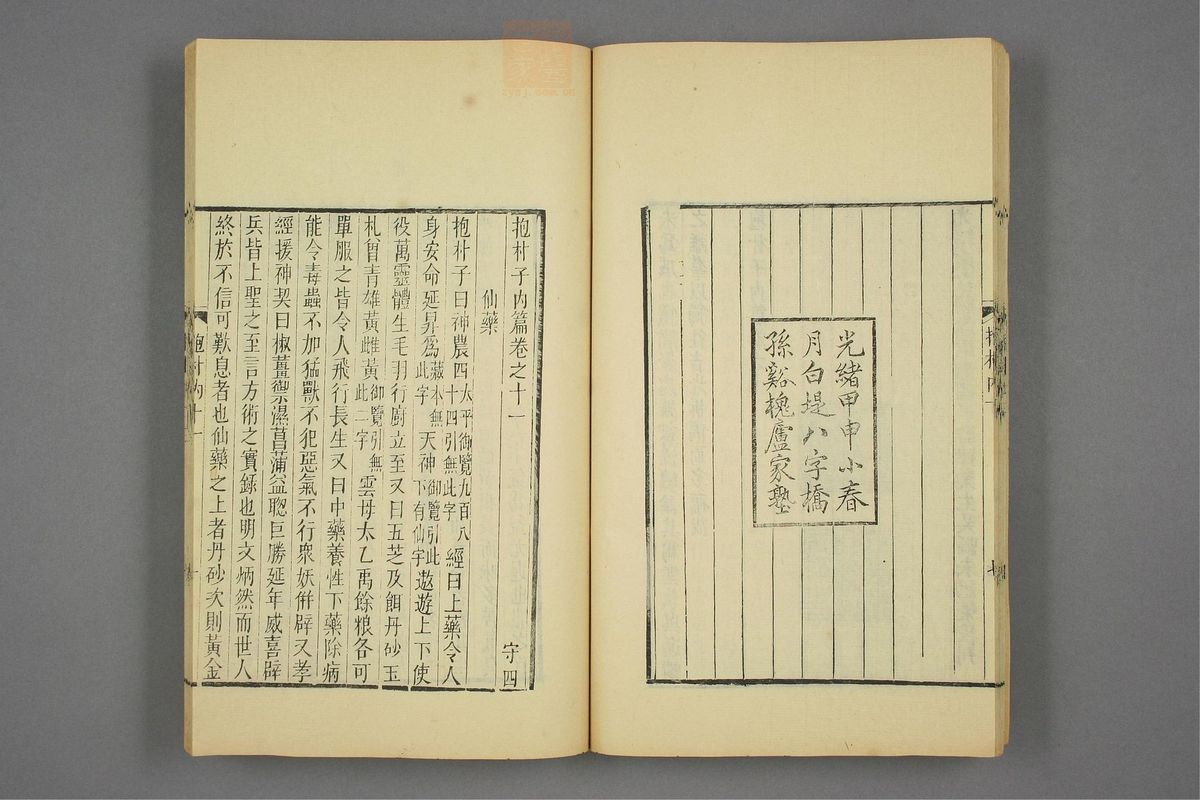 光緒甲申小春
月白堤八字橋
孫谿槐廬家塾
抱朴子内篇卷之十一
守四
仙藥
抱朴子曰神農四太平御覽九百八十四引無此字經曰上藥令人
身安命延昇爲藏本無此字天神御覽引此下有仙字遨遊上下使
役萬靈體生毛羽行廚立至又曰五芝及餌丹砂玉
札曾青雄黃雌黃御覽引無此二字雲母太乙禹餘粮各可
單服之皆令人飛行長生又曰中藥養性下藥除病
能令毒蟲不加猛獸不犯惡氣不行衆妖併辟又孝
經援神契曰椒薑禦濕菖蒲益聰巨勝延年威喜辟
兵皆上聖之至言方術之實錄也明文炳然而世人
終於不信可歎息者也仙藥之上者丹砂次則黃金
抱朴内十一
zysj.com.cn